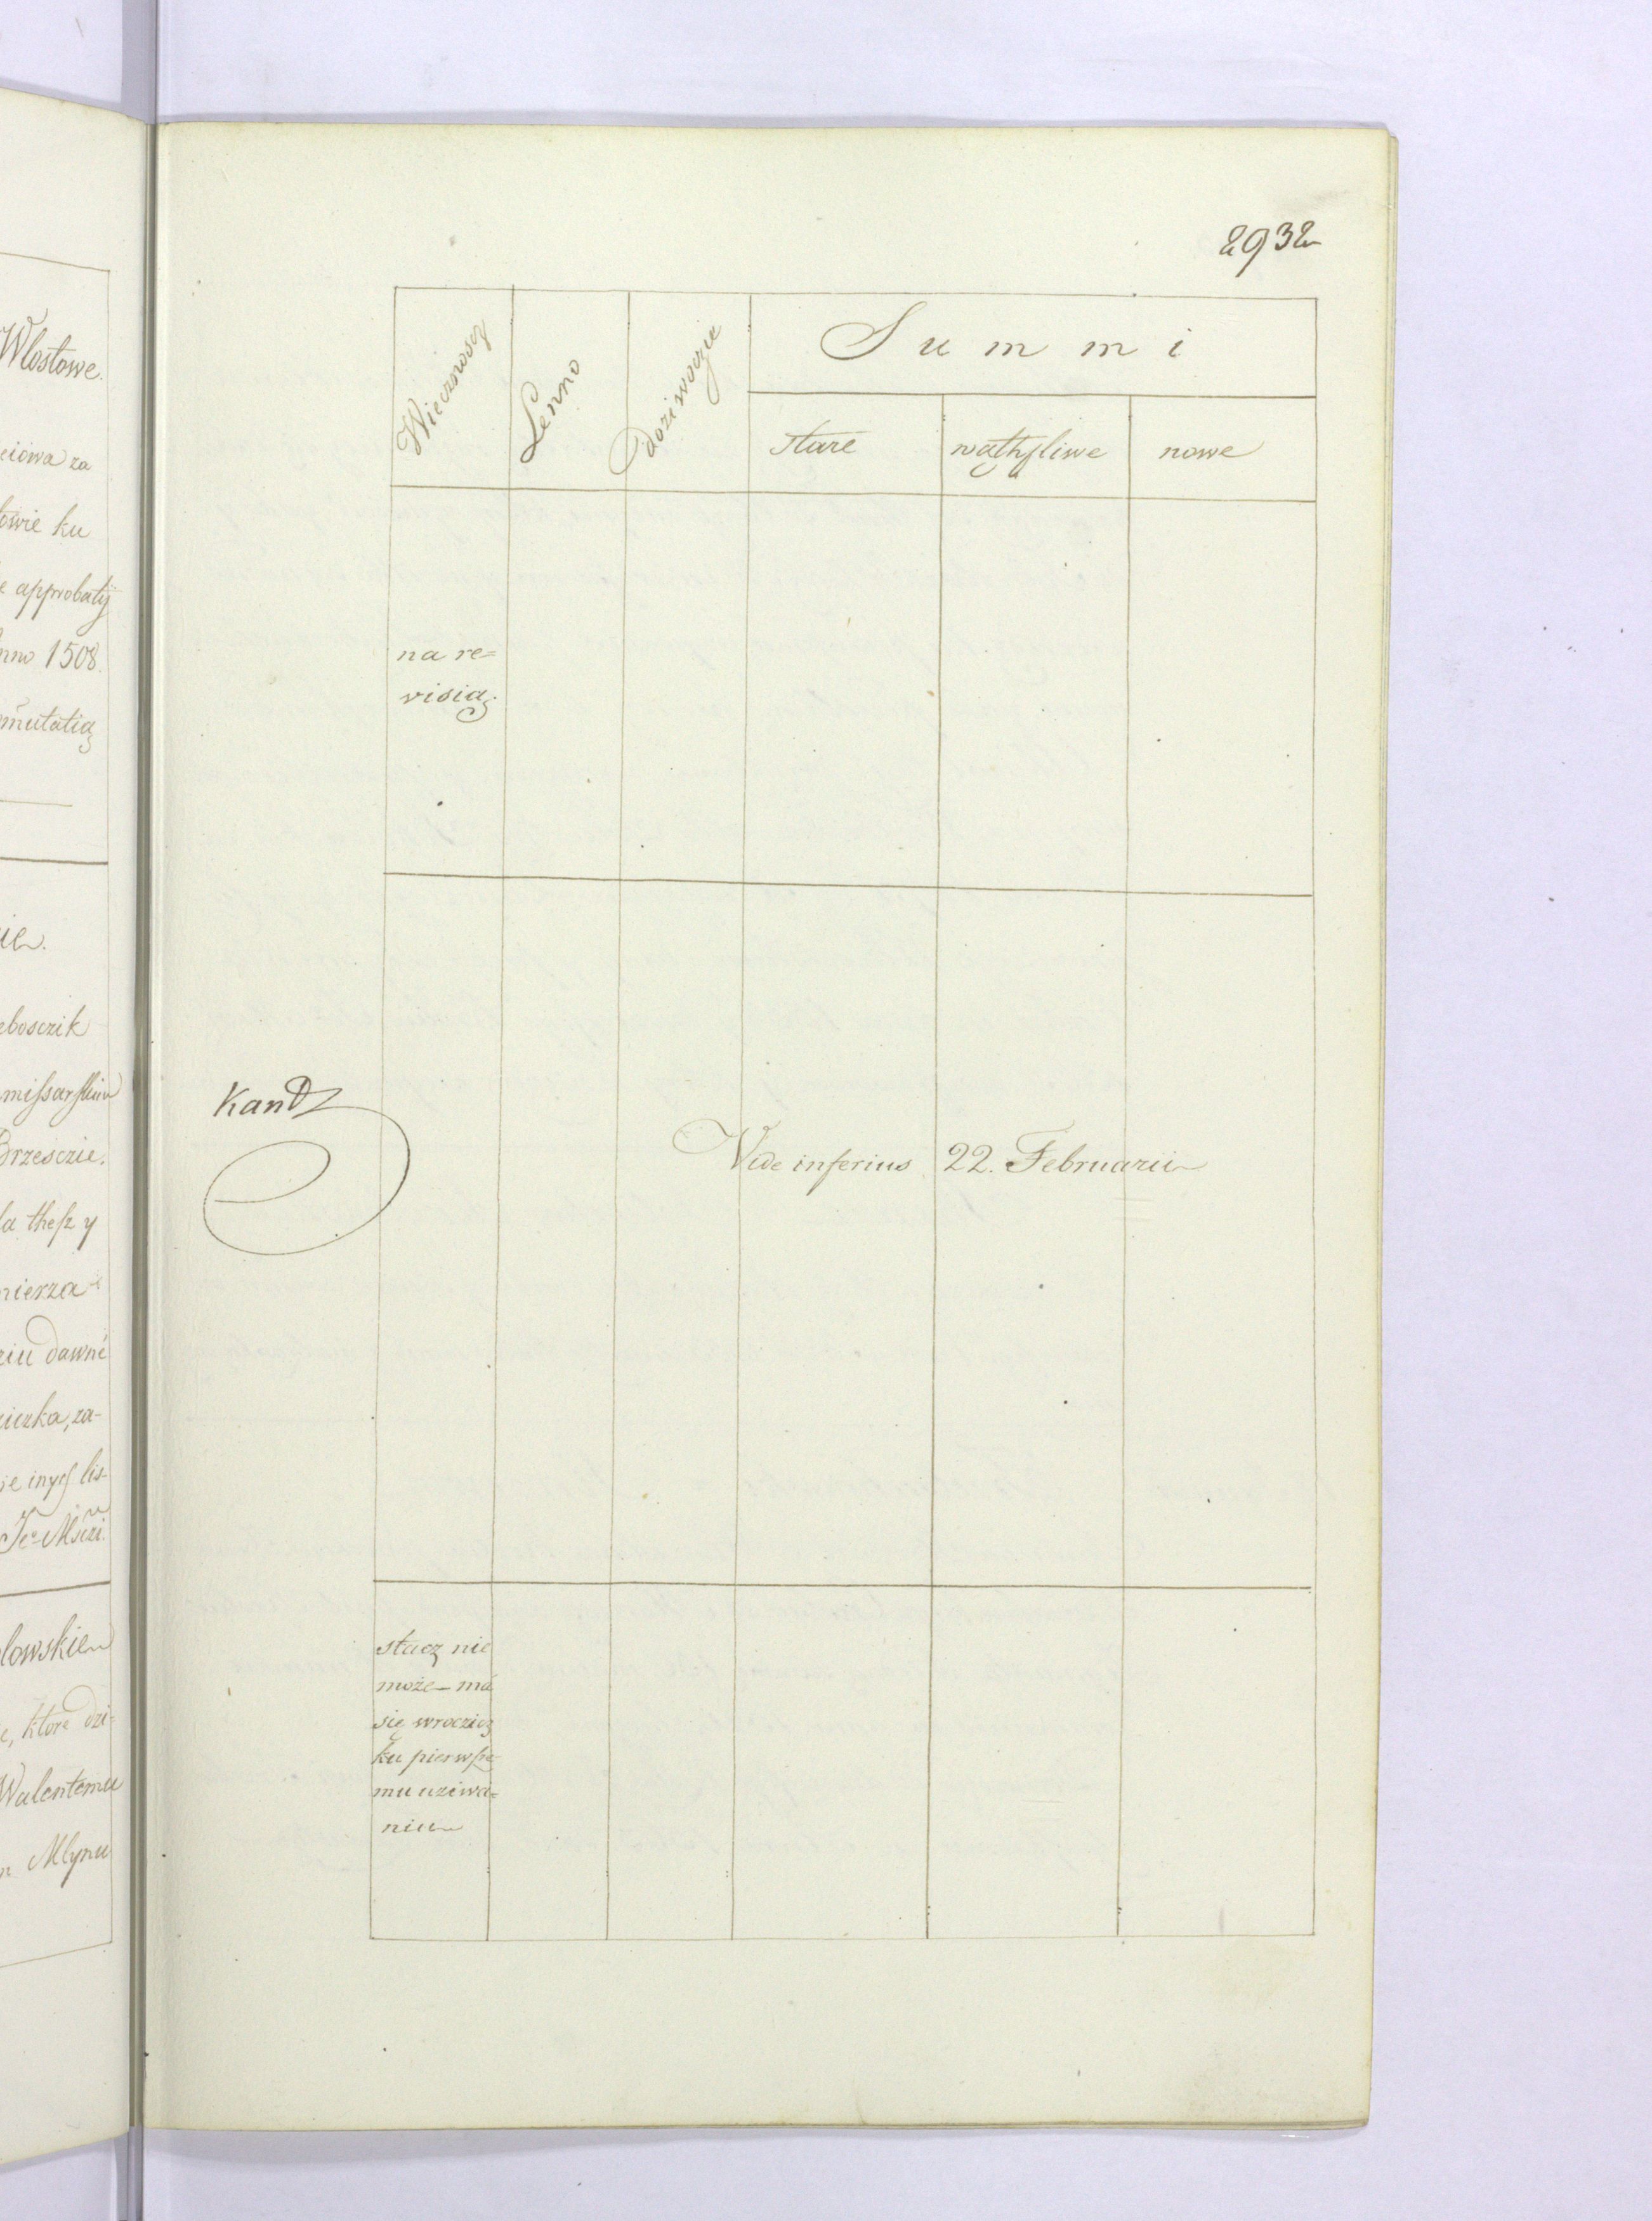 Wlostowe.
eiowa za
towie ku
e approbatÿ
nno 1508.
mutatią
ie.
ebosczik
missarskim
Brzesczie.
la thesz y
mierza
ziu dawné
iczka, za-
je inych lis-
Je° Mści.
lowskie
e, ktore dzi-
Walentemu
n Mlynu
2932
Wiecznoscz
Lenno
doziwoczie
Summi
staré
wąthpliwe
nowe
na re=
visią.
Kandz
Vide inferius 22. Februarii
stacz nie
może – má
się wroczicz
ku pierwsze
mu uziwa=
niu